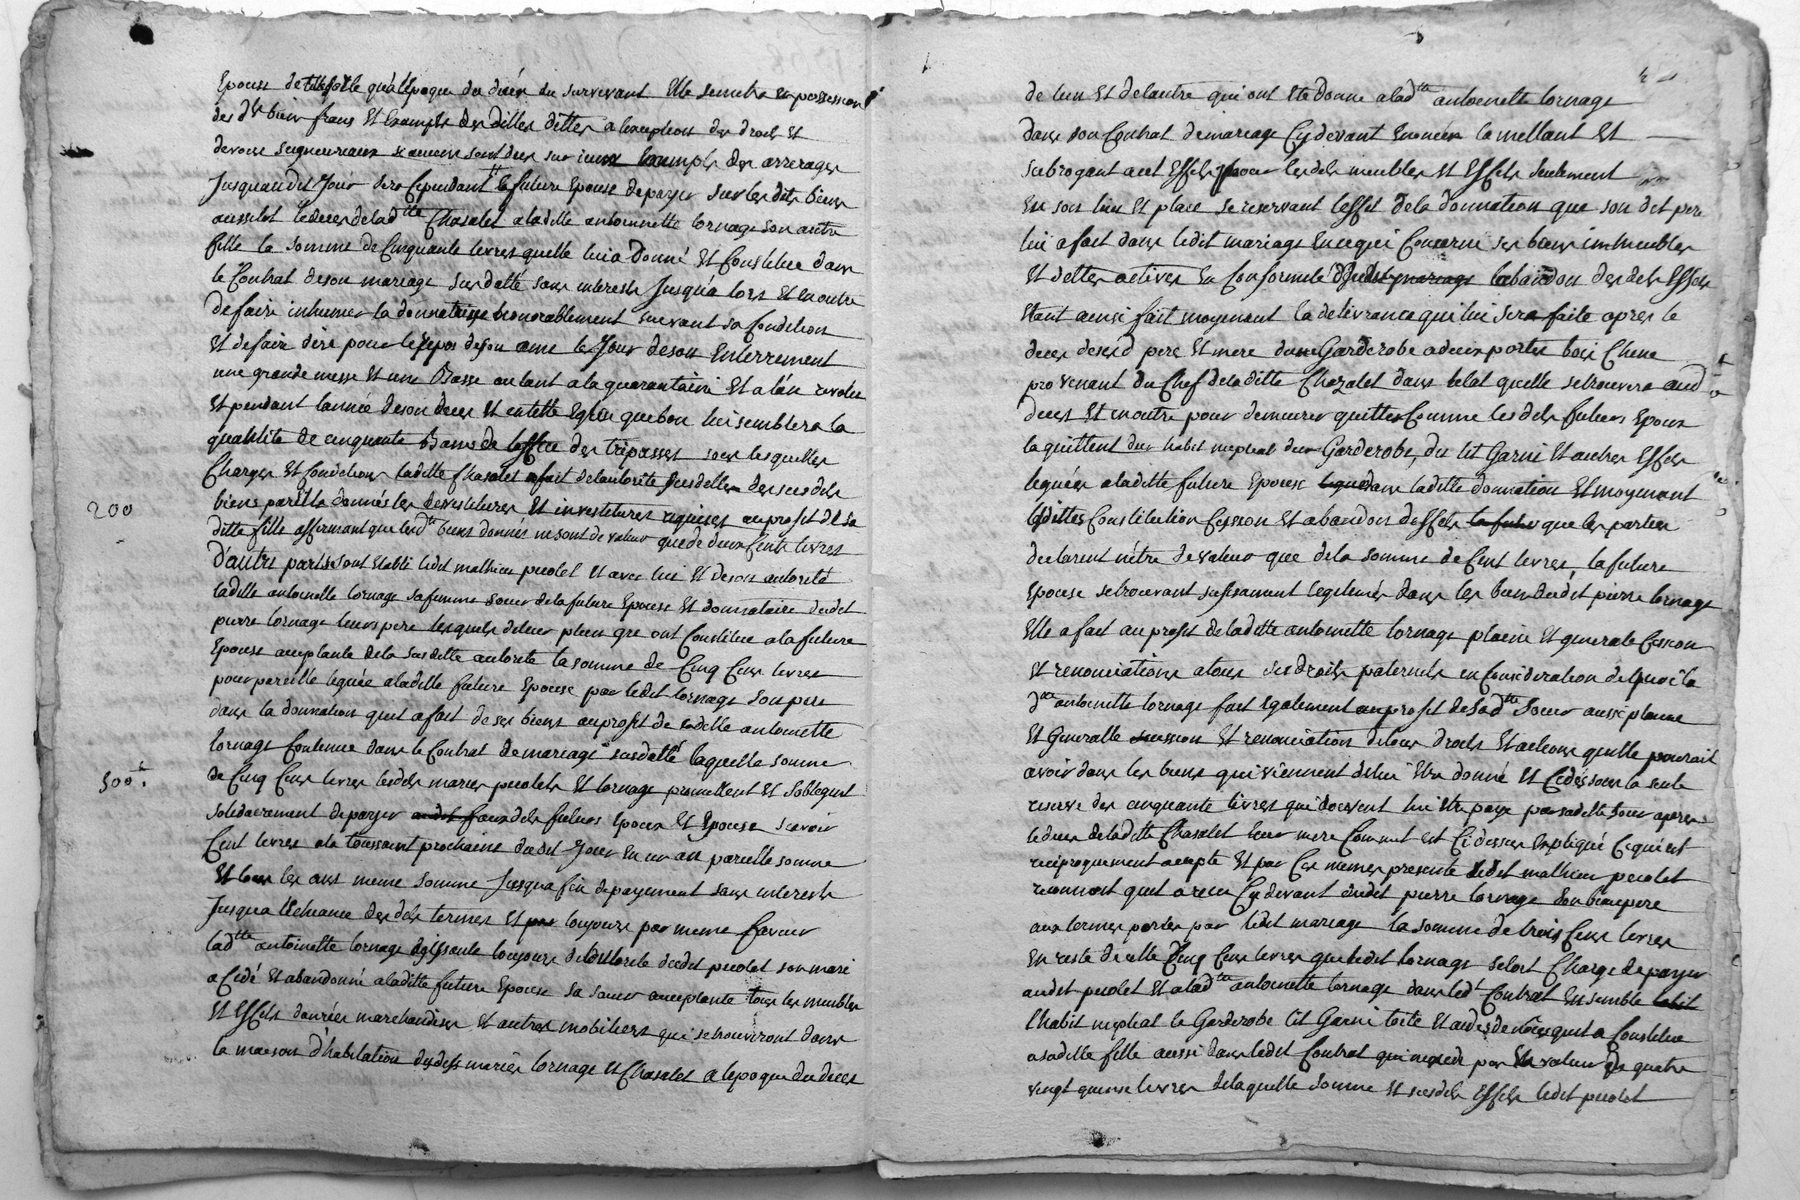 Epouse de telle sorte qu'a l'epoque du deces du survivant Elle se mettra en possession
des dts biens francs Et Exempts des dittes dettes a lexception des droits Et
devoirs seigneuriaux si aucuns sont deus sur iceux Exempts des arrerages
Jusqu'audit Jour sera cependant la future Epouse de payer sur les dits biens
aussitot le deces de lad.tte Chazalet a laditte antoinette Cornage son autre
fille la somme de Cinquante livres quelle lui a Donné Et Constituée dans
le Contrat de son mariage susdatté sans interets Jusqu'a lors Et en outre
de faire inhumer la donnatrisse honorablement suivant sa Condition
Et de faire dire pour le repos de son ame le Jour de son Enterrement
une grande messe Et une Basse autant a la quarantaine Et a lan revolu
Et pendant lannée de son deces Et en telle Eglise que bon lui semblera la
quantité de cinquante Basses de loffice des trepassés sous lesquelles
Charges Et Conditions laditte Chazalet a fait de lautorité susditte des susdits
200
biens par elle donnés les devestitures Et investitures requises au profit de sa
ditte fille affirmant que lesd.ts biens donnés ne sont de valeur que de deux Cents livres
D'autre part se sont Etabli ledit mathieu peolet Et avec lui Et de son autorité
laditte antoinette Cornage sa femme soeur de la future Epouse Et donnataire dudit
pierre Cornage leurs pere lesquels de leur plein gré ont Constitué a la future
Epouse acceptante de la susditte autorité la somme de Cinq Cens livres
pour pareille leguée a laditte future Epouse par ledit Cornage son pere
dans la donnation quil a fait de ses biens au profit de laditte antoinette
Cornage Contenue dans le Contrat de mariage susdatté laquelle somme
500 #
de Cinq Cens livres lesdits mariés peolets Et Cornage promettent Et soblegent
solidairement de payer auxdits futurs Epoux Et Epouse scavoir
Cent livres a la toussaint prochaine dudit Jour En un an pareille somme
Et tous les ans meme somme Jusqua fin de payement sans interets
Jusqua l'Echeance desdits termes Et toujours par meme faveur
lad.tte antoinette Cornage agissante toujours de lautorité dudit peolet son mari
a Cedé Et abandonné a laditte future Epouse sa soeur acceptante tous les meubles
Et Effets danrées marchandises Et autres mobiliers qui se trouveront dans
la maison d'habitation desdits mariés Cornage Et Chazalet a lepoque du deces
de lun Et de lautre qui ont Eté donné a lad.tte antoinette Cornage
dans son Contrat de mariage Cydevant Enoncée la mettant Et
subrogeant a cet Effet pour lesdits meubles Et Effets seulement
En son lieu Et place se reservant leffet de la donnation que son dit pere
lui a fait dans ledit mariage En ce qui Concerne ses biens immeubles
Et dettes actives En Conformité labandon desdits Effets
Etant ainsi fait moyenant la delivrance qui lui sera faite apres le
deces de sesd. pere Et mere dune Garderobe a deux portes bois Chene
provenant du Chef de laditte Chazalet dans letat quelle se trouvera aud
deces Et en outre pour demeurer quittes Comme lesdits futurs Epoux
la quittent dun habit nuptial dun Garderobe, du lit Garni Et autres Effets
leguées a laditte future Epouse dans laditte donnation Et moyenant
lesdittes Constitution Cession Et abandon deffets que les parties
declarent nétre de valeur que de la somme de Cent livres, la future
Epouse se trouvant sufisament legitimée dans les biens dudit pierre Cornage
Elle a fait au profit de laditte antoinette Cornage pleine Et generale Cession
Et renonciation a tous ses droits paternels en Consideration de quoi la
d.tte antoinette Cornage fait Egalement au profit de lad.tte soeur aussi pleine
Et Generalle Cession Et renonciation de tous droits Et actions quelle pourrait
avoir dans les biens qui viennent de lui Etre donné Et Cedés sous la seule
reserve des cinquante livres qui doivent lui Etre payé par laditte soeur apres
le deces de laditte Chazalet leur mere Comme il est Cidessus Expliqué Ce qui est
reciproquement accepté Et par Ces memes presente ledit mathieu peolet
reconnoit quil a reçu Cydevant dudit pierre Cornage son beaupere
aux termes portés par ledit mariage la somme de trois Cens livres
En reste de celle Cinq Cens livres que ledit Cornage setoit Chargé de payer
audit peolet Et a lad.tte antoinette Cornage dans led.t Contrat Ensemble
lhabit nuptial le Garderobe lit Garni Et quil a Constitué
a saditte fille aussi dans ledit Contrat qui par valeur de quatre
vingt quinze livres de laquelle somme Et susdits Effets ledit peolet